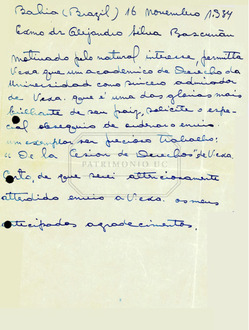 Bahia (Brazil) 16 Novembro 1934
Exmo dr Alejandro Silva Bascuñán
Motivado pelo natural interesse, permitta
Vexa. que um academico de Direito da
Universidade com sincero admirador
de Vexa. que é uma das glorias mais
brilhante de seu paiz, solicite o espe-
cial obsequio de endracar o envio
um exemplar seu precioso trabalho:
"De la Cesion de Derechos" de Vexa.
Certo, de que serei attenciosamente
attendido envio a Vexa. os meus
antecipados agradecimentos.
PATRIMONIO UC